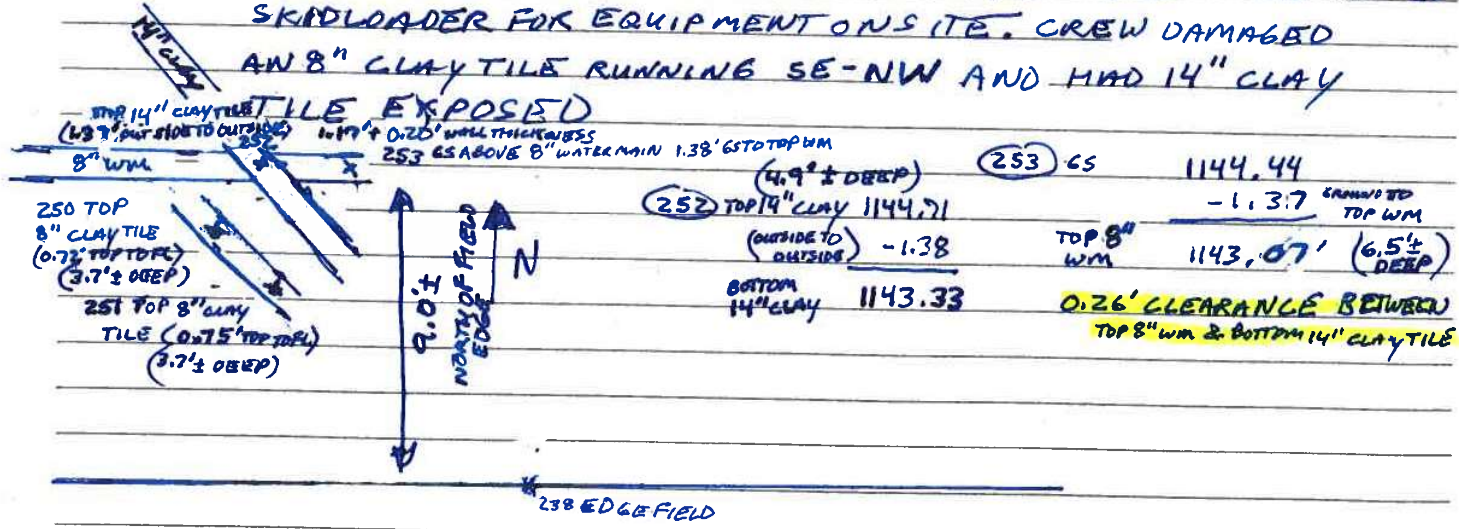 SKIDLOADER FOR EQUIPMENT ONSITE. CREW DAMAGED
AN 8" CLAY TILE RUNNING SE-NW AND HAD 14" CLAY
TILE EXPOSED
14" CLAY
TOP 14" CLAY TILE
OUTSIDE TO OUTSIDE)
+ 0.20' WALL THICKNESS
252
253 GS ABOVE 8" WATERMAIN 1.38' GS TO TOP WM
8" WM
250 TOP
8" CLAY TILE
(0.72' TOP TO FL)
(3.7'± DEEP)
251 TOP 8" CLAY
TILE (0.75' TOP TO FL)
(3.7'± DEEP)
9.0'±
NORTH OF FIELD
EDGE
N
(4.9'± DEEP)
252 TOP 14" CLAY 1144.71
(OUTSIDE TO
OUTSIDE) -1.38
BOTTOM
14" CLAY 1143.33
253 GS 1144.44
-1.37 GROUND TO
TOP WM
TOP 8"
WM 1143.07' (6.5'±
DEEP)
0.26' CLEARANCE BETWEEN
TOP 8" WM & BOTTOM 14" CLAY TILE
238 EDGE FIELD